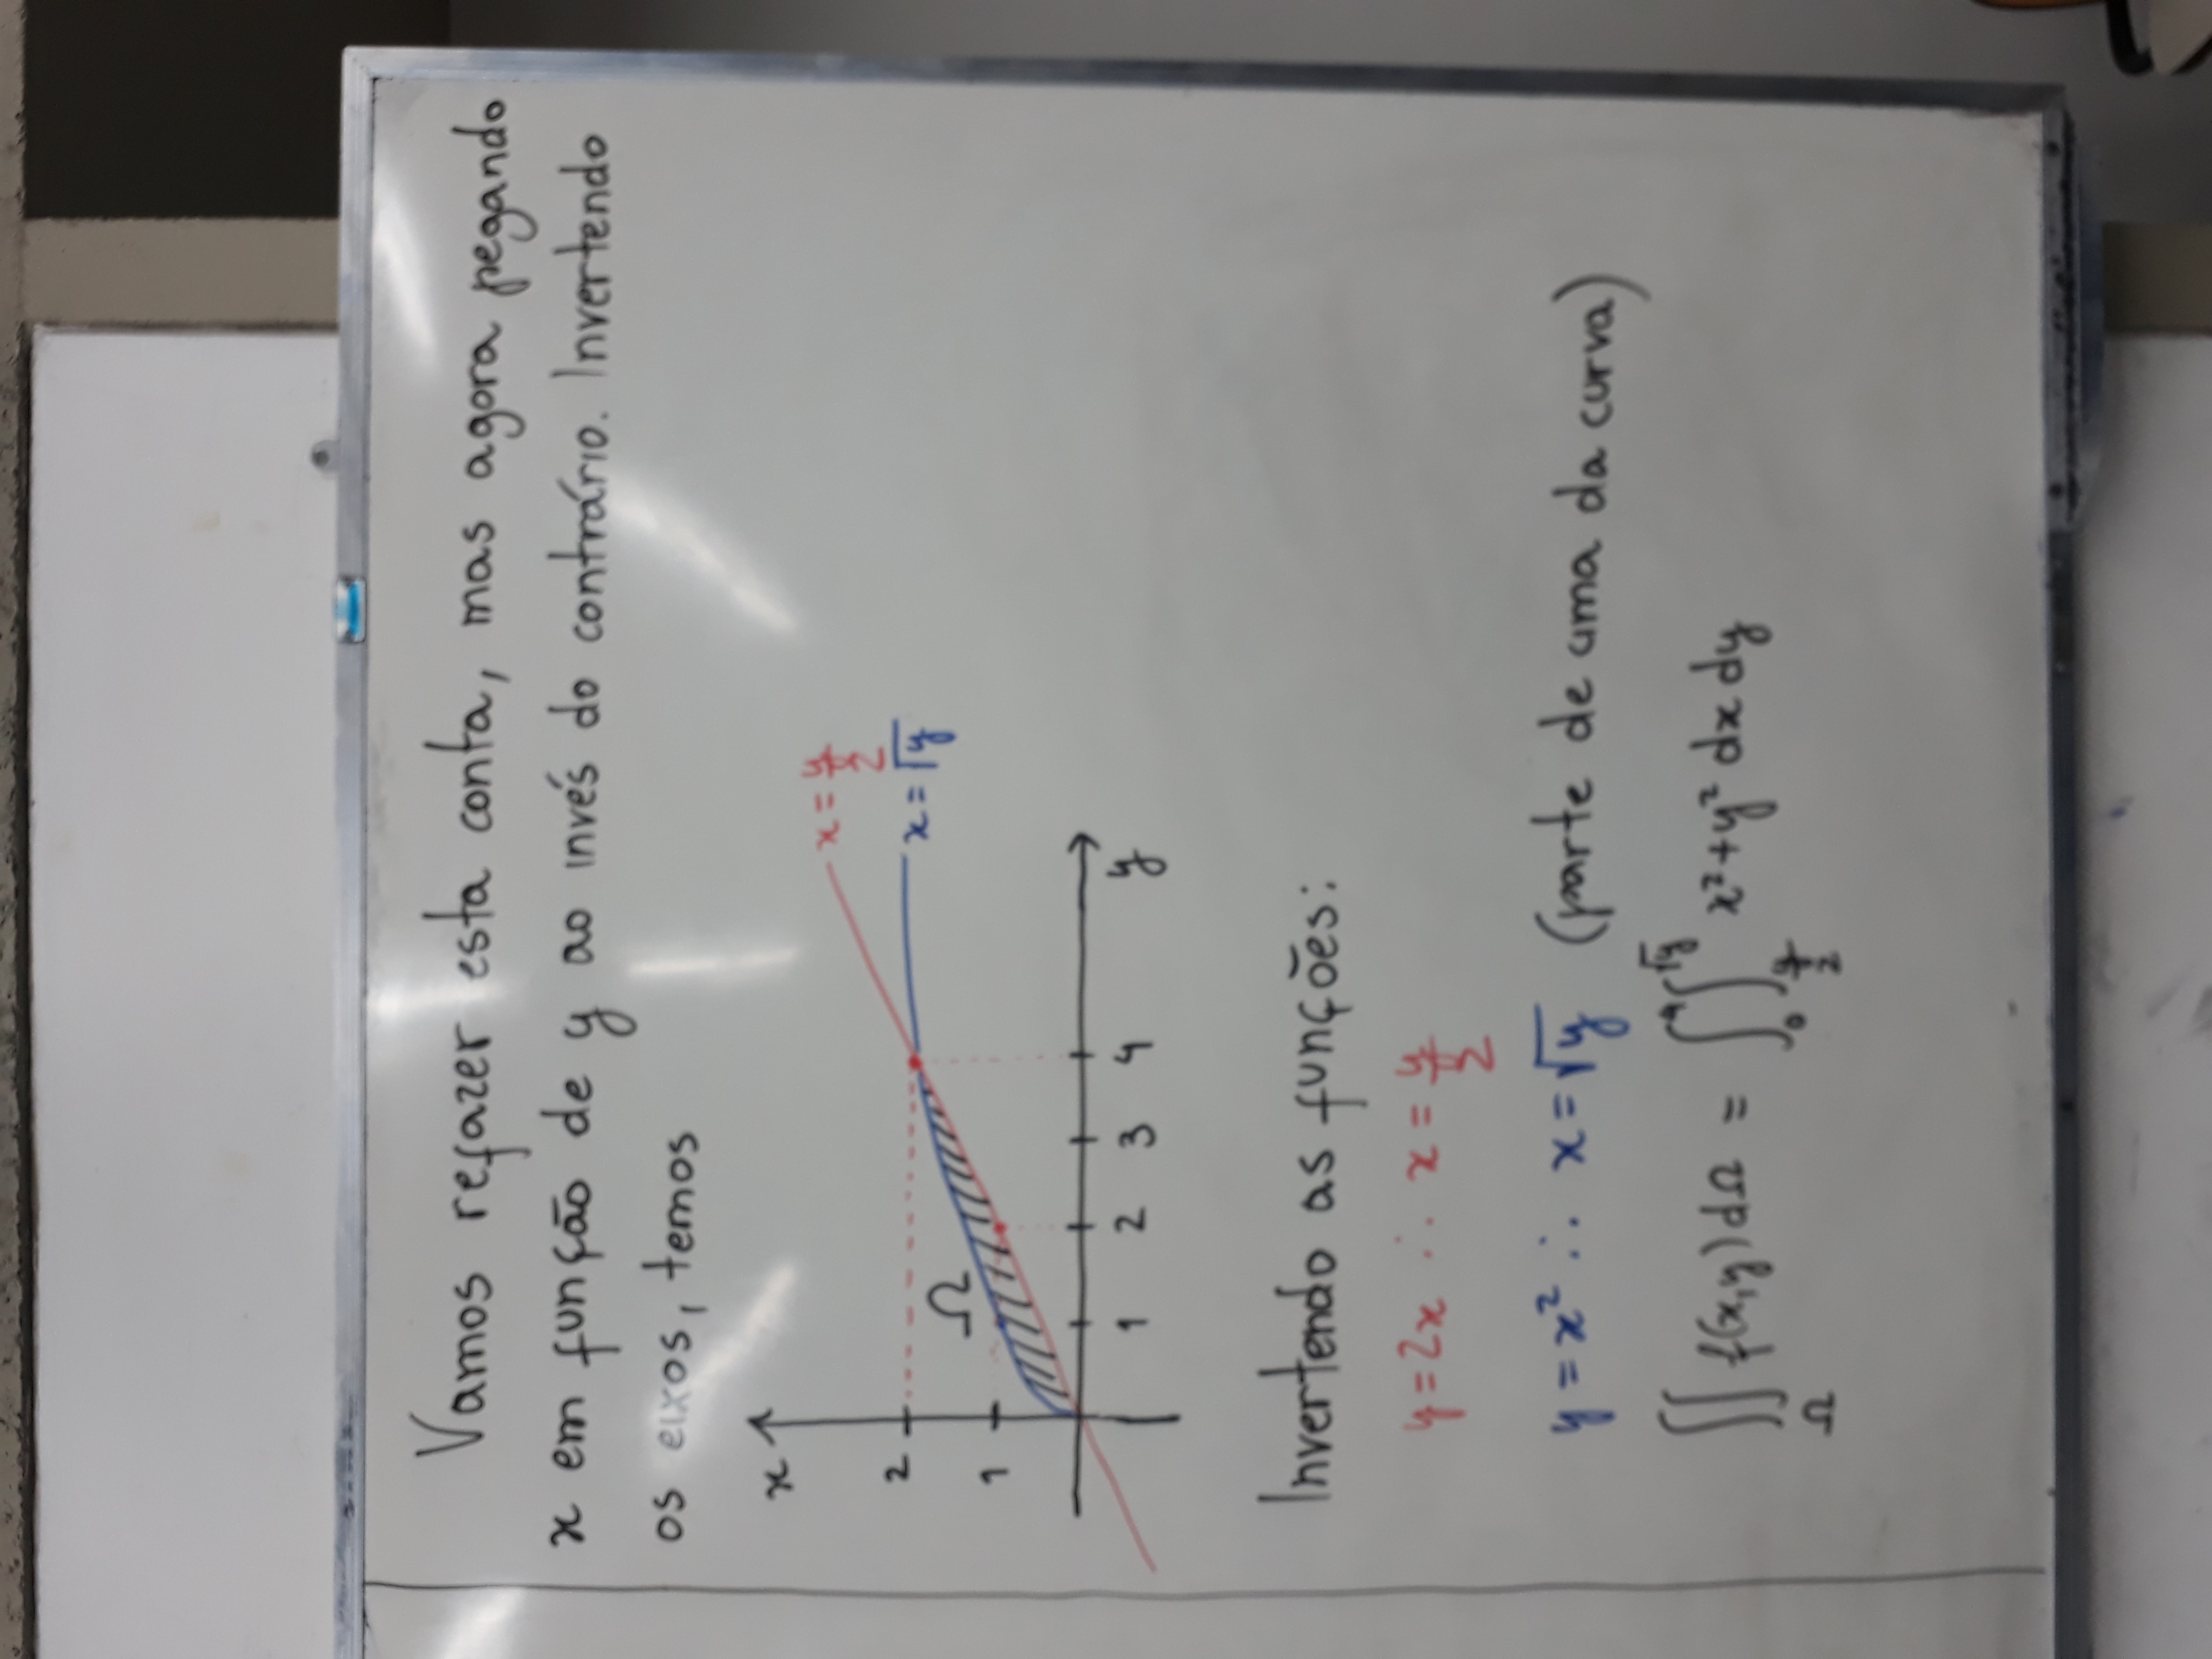 Vamos refazer esta conta, mas agora pegando
x em função de y ao invés do contrário. Invertendo
os eixos, temos
x
x = y/2
2
x = √y
Ω
1
1 2 3 4 y
Invertendo as funções:
y = 2x ∴ x = y/2
y = x² ∴ x = √y (parte de uma da curva)
∬_Ω f(x,y) dΩ = ∫_0^4 ∫_{y/2}^{√y} x² + y² dx dy